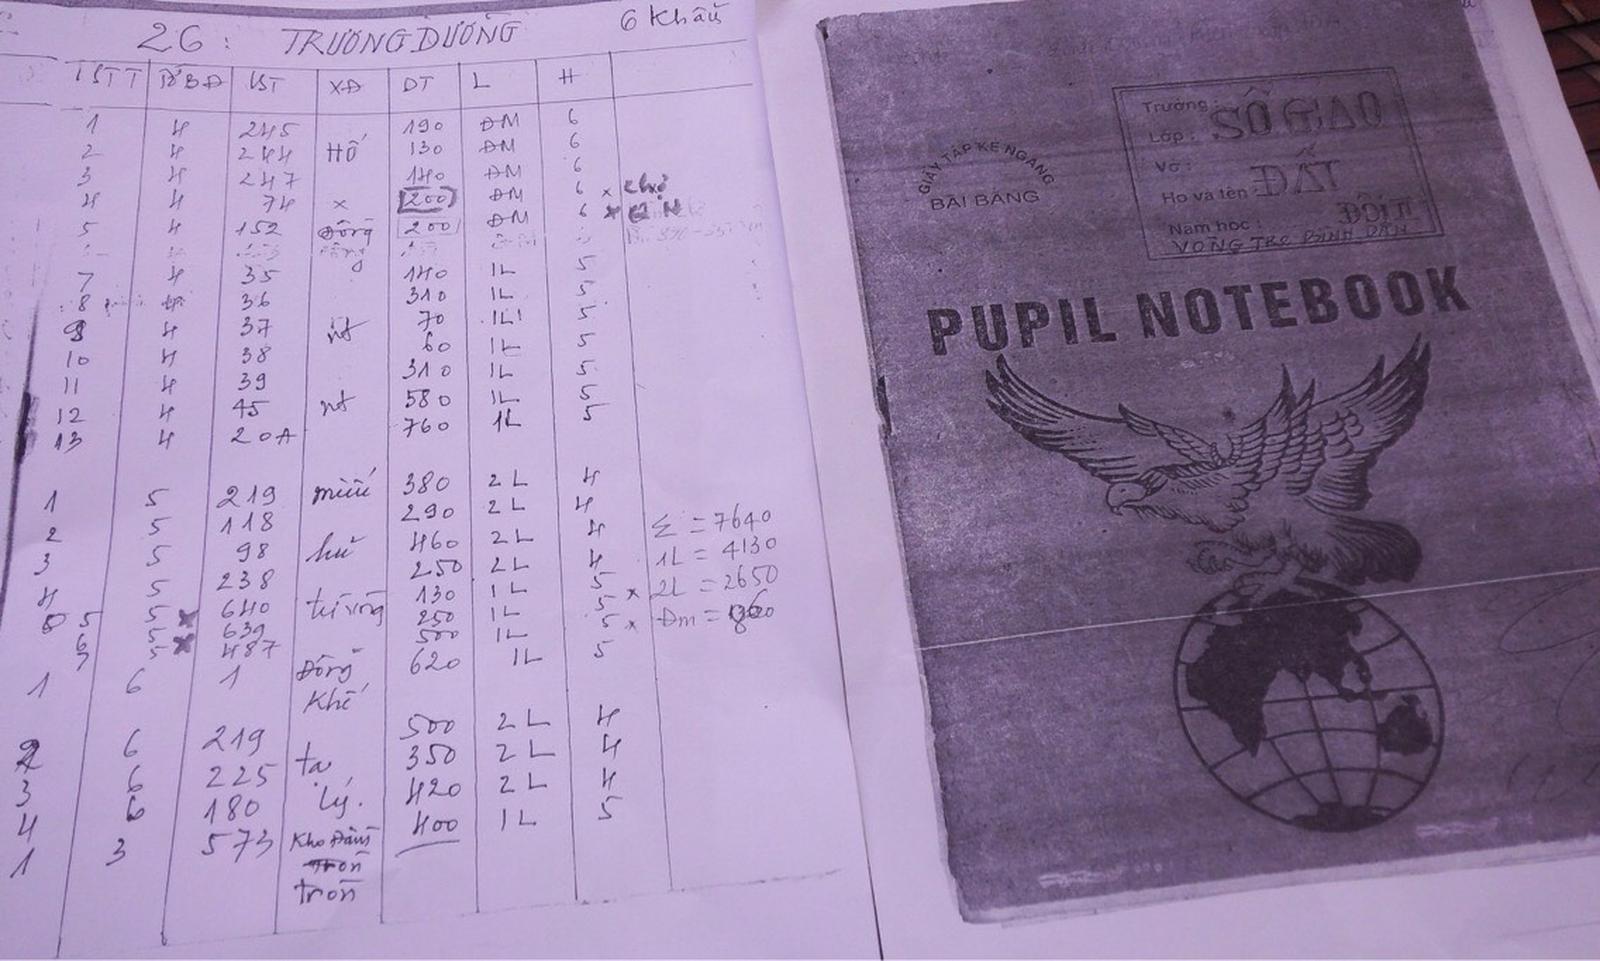 26: TRƯƠNG DƯỠNG 6 Khẩu
STT TỜBĐ ST XĐ DT L H
1 4 245 190 ĐM 6
2 4 244 Hố 130 ĐM 6
3 4 247 140 ĐM 6
4 4 74 x 200 ĐM 6 x
5 4 152 Đồng 200 ĐM 6 x
7 4 35 140 1L 5
8 4 36 310 1L 5
9 4 37 nt 70 1L 5
10 4 38 60 1L 5
11 4 39 310 1L 5
12 4 45 nt 580 1L 5
13 4 20A 760 1L 5
1 5 219 miếu 380 2L 4
2 5 118 290 2L 4
3 5 98 hư 460 2L 4
4 5 238 250 2L 4
5 5 640 130 1L 5
6 5 639 250 1L 5
7 5 487 500 1L 5
1 6 1 Đồng 620 1L 5
Khế
2 6 219 500 2L 4
3 6 225 ta 350 2L 4
4 6 180 lý. 420 2L 4
1 3 573 400 1L 5
tròn
Σ = 7640
1L = 4130
2L = 2650
Đm =
GIẤY TẬP KẺ NGANG
BÃI BẰNG
Trường: SỔ GIAO
Lớp:
Vở: ĐẤT
Họ và tên:
Năm học:
PUPIL NOTEBOOK